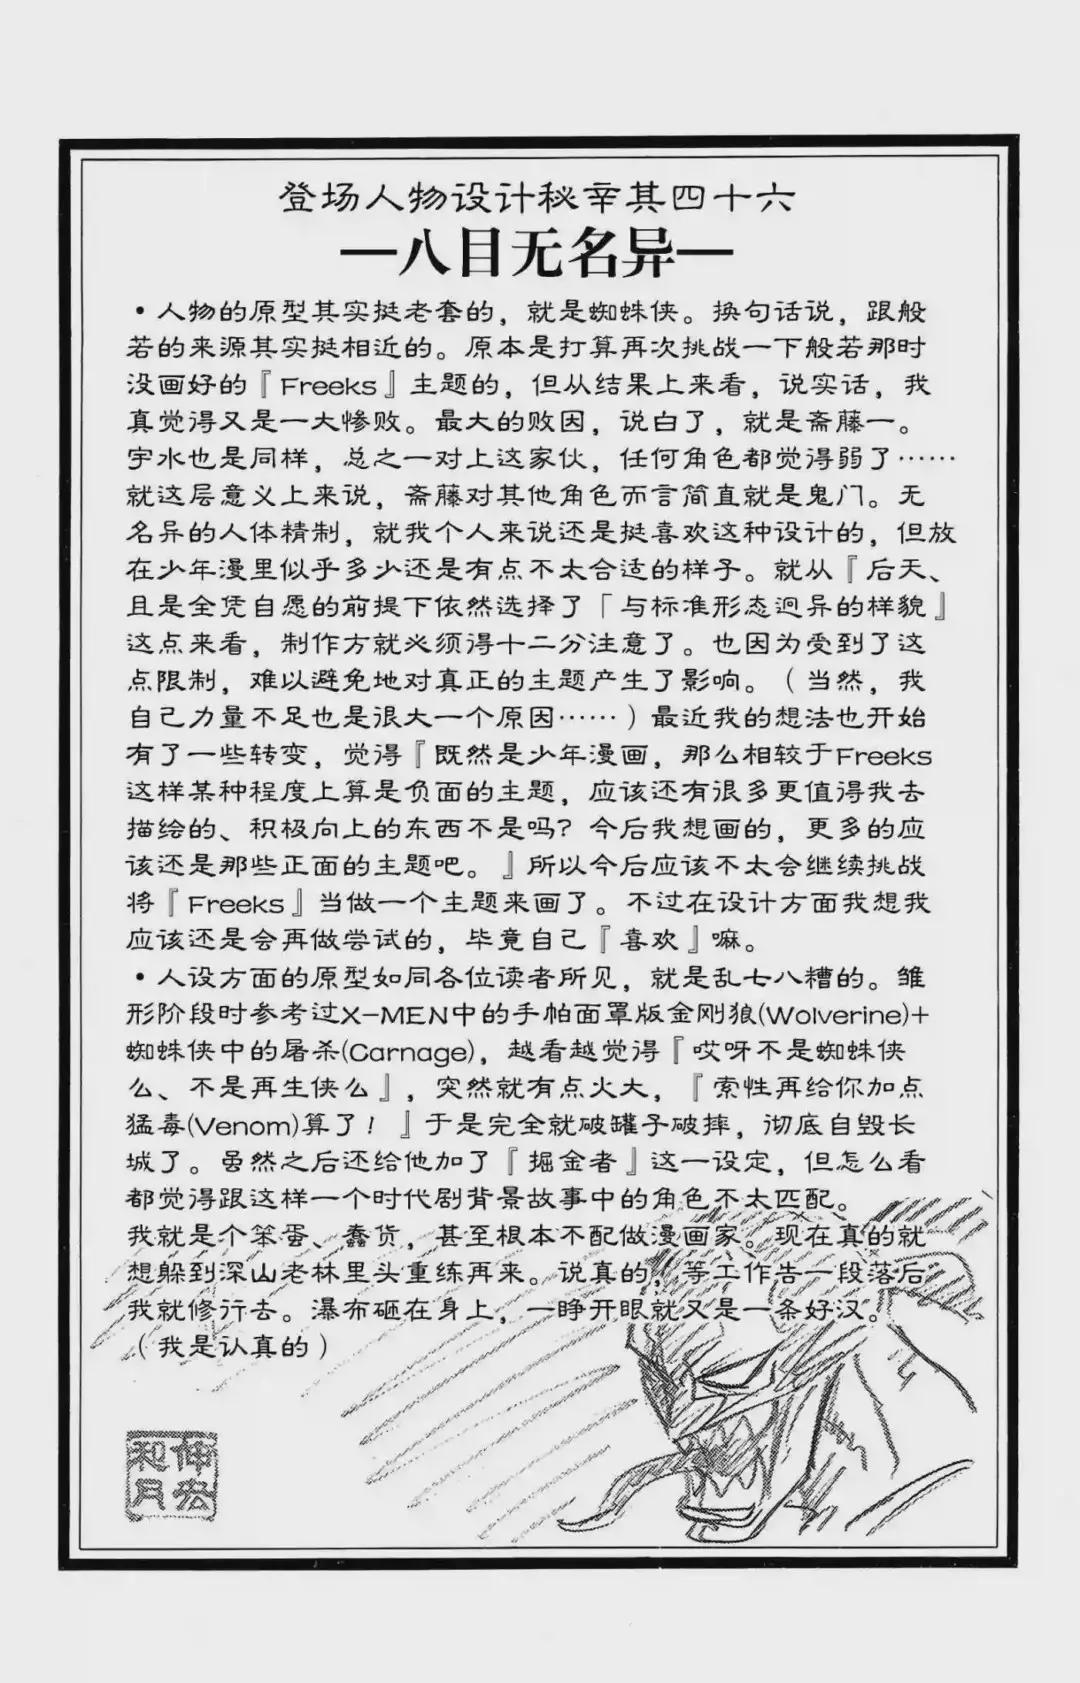 登场人物设计秘辛其四十六
—八目无名异—
・人物的原型其实挺老套的，就是蜘蛛侠。换句话说，跟般
若的来源其实挺相近的。原本是打算再次挑战一下般若那时
没画好的『Freeks』主题的，但从结果上来看，说实话，我
真觉得又是一大惨败。最大的败因，说白了，就是斋藤一。
宇水也是同样，总之一对上这家伙，任何角色都觉得弱了……
就这层意义上来说，斋藤对其他角色而言简直就是鬼门。无
名异的人体精制，就我个人来说还是挺喜欢这种设计的，但放
在少年漫里似乎多少还是有点不太合适的样子。就从『后天、
且是全凭自愿的前提下依然选择了「与标准形态迥异的样貌』
这点来看，制作方就必须得十二分注意了。也因为受到了这
点限制，难以避免地对真正的主题产生了影响。（当然，我
自己力量不足也是很大一个原因……）最近我的想法也开始
有了一些转变，觉得『既然是少年漫画，那么相较于Freeks
这样某种程度上算是负面的主题，应该还有很多更值得我去
描绘的、积极向上的东西不是吗？今后我想画的，更多的应
该还是那些正面的主题吧。』所以今后应该不太会继续挑战
将『Freeks』当做一个主题来画了。不过在设计方面我想我
应该还是会再做尝试的，毕竟自己『喜欢』嘛。
・人设方面的原型如同各位读者所见，就是乱七八糟的。雏
形阶段时参考过X-MEN中的手帕面罩版金刚狼(Wolverine)+
蜘蛛侠中的屠杀(Carnage)，越看越觉得『哎呀不是蜘蛛侠
么、不是再生侠么』，突然就有点火大，『索性再给你加点
猛毒(Venom)算了！』于是完全就破罐子破摔，彻底自毁长
城了。虽然之后还给他加了『掘金者』这一设定，但怎么看
都觉得跟这样一个时代剧背景故事中的角色不太匹配。
我就是个笨蛋、蠢货，甚至根本不配做漫画家。现在真的就
想躲到深山老林里头重练再来。说真的，等工作告一段落后
我就修行去。瀑布砸在身上，一睁开眼就又是一条好汉。
（我是认真的）
和月
伸宏